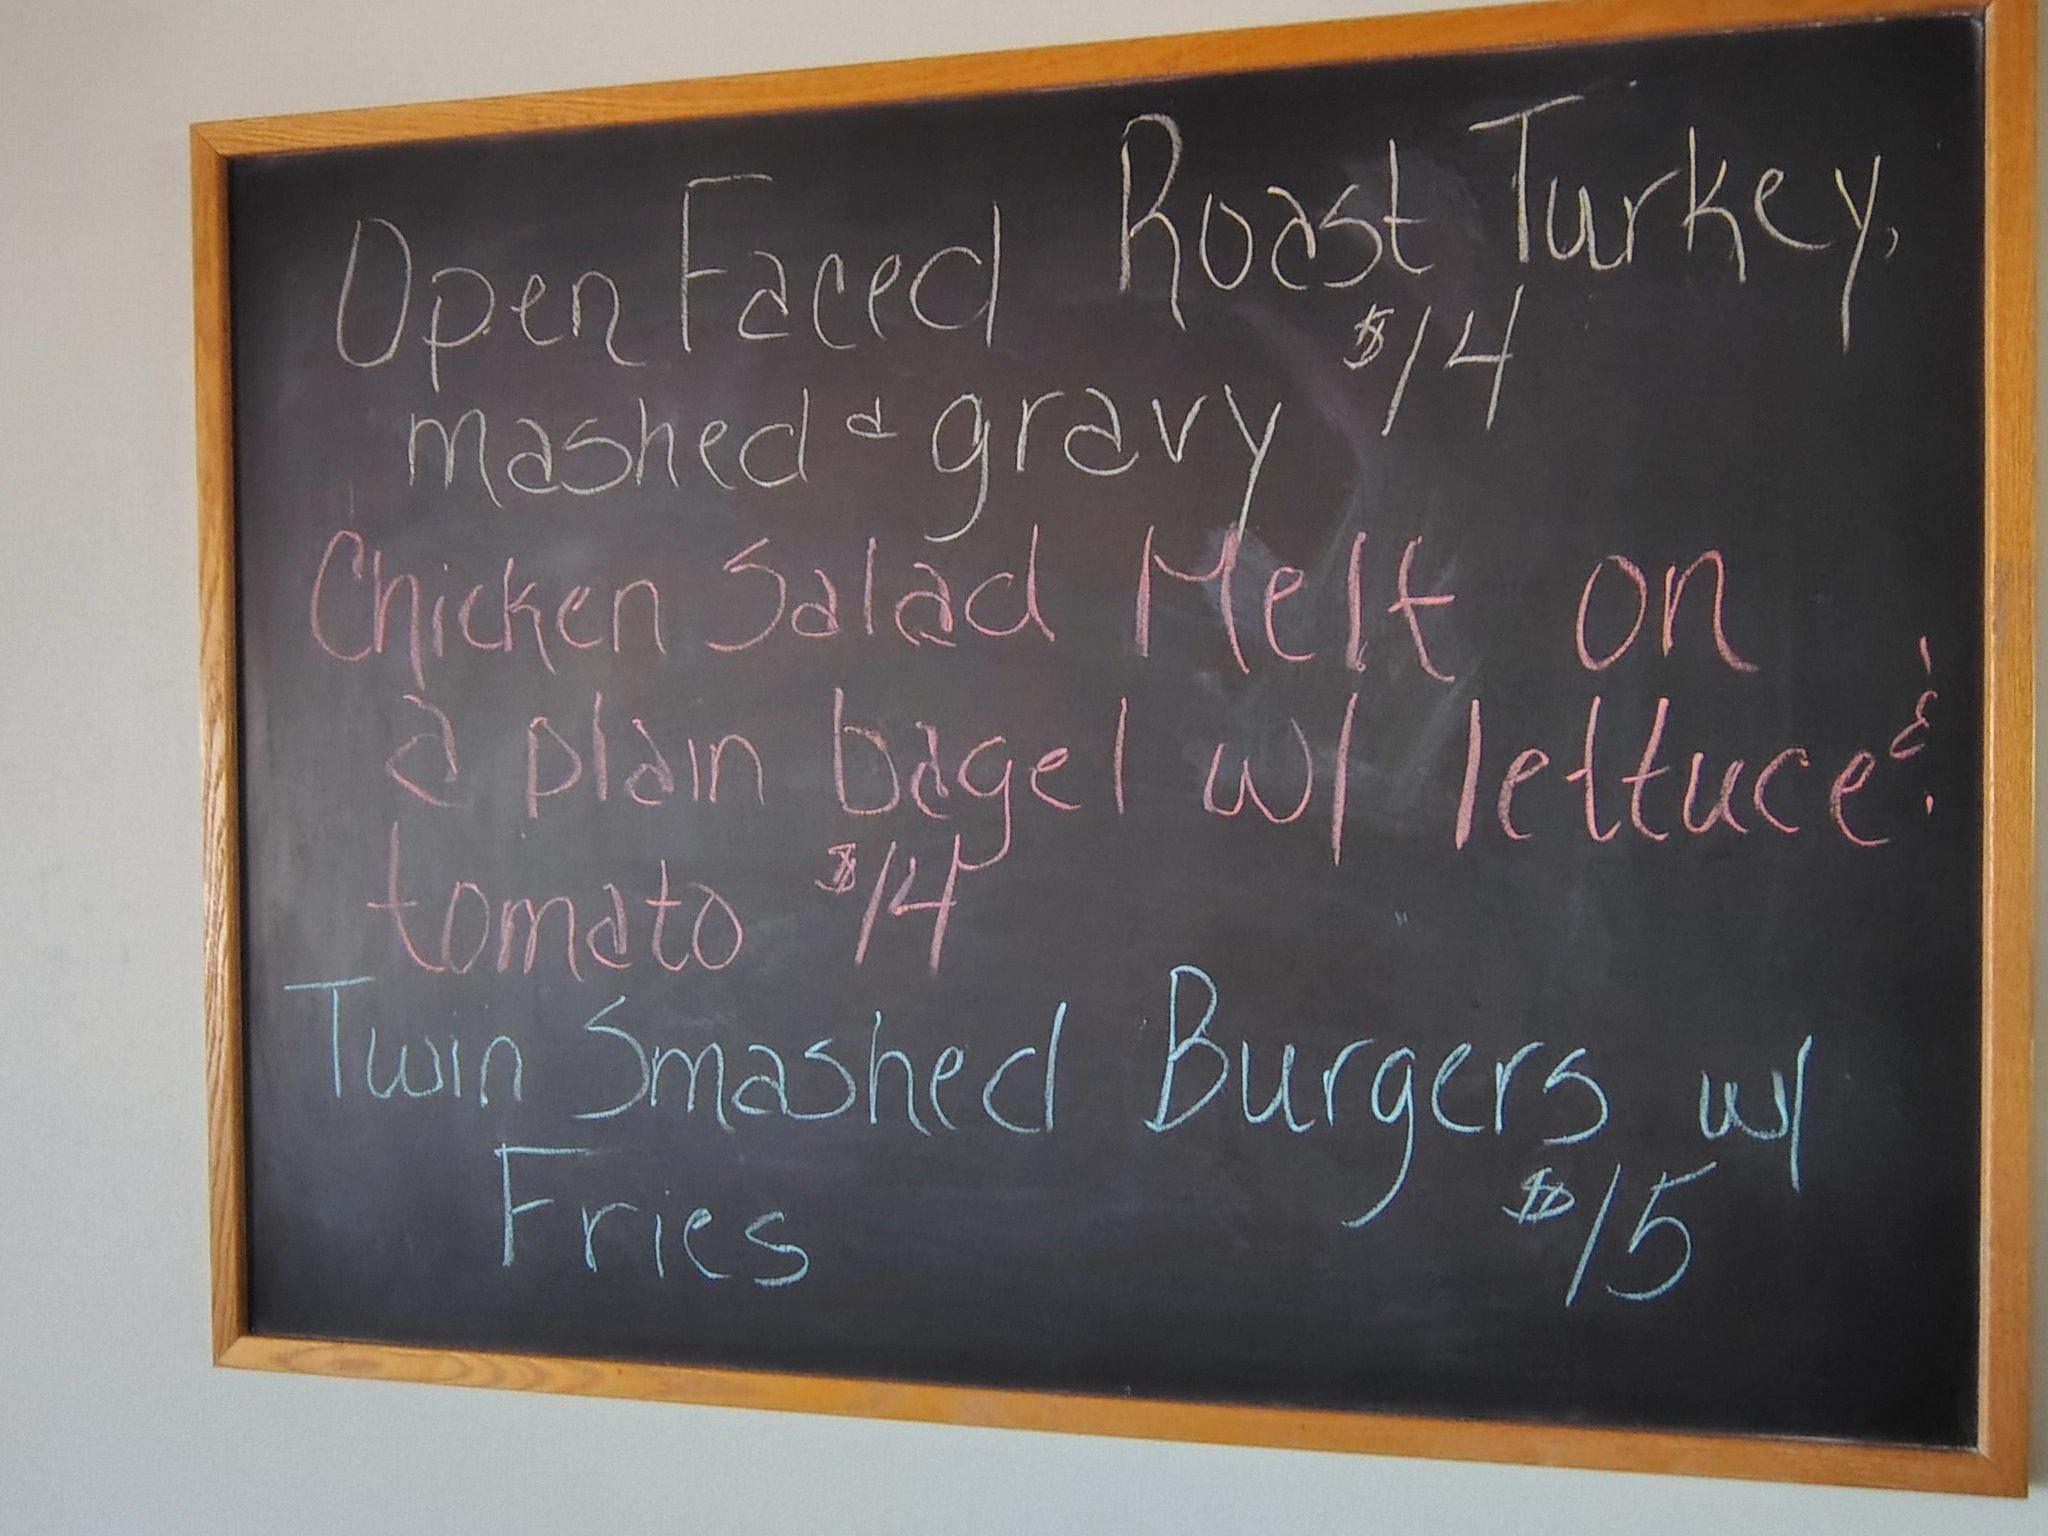 Open Faced Roast Turkey,
$14
mashed & gravy
Chicken Salad Melt on
a plain bagel w/ lettuce &
tomato $14
Twin Smashed Burgers w/
Fries $15